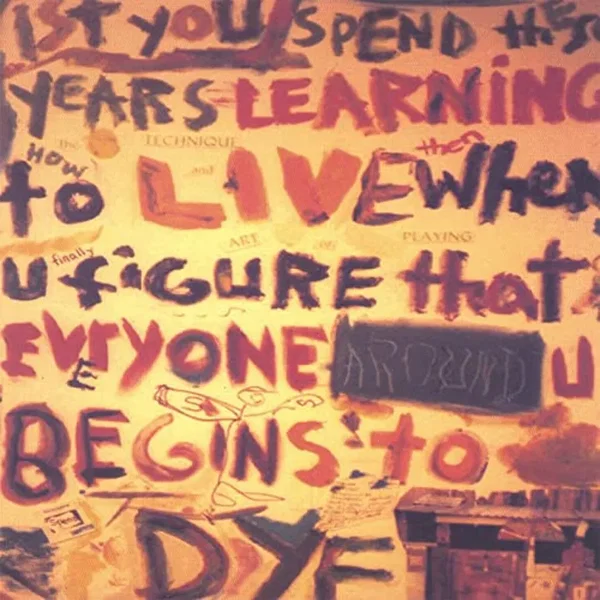 1ST YOU SPEND these
YEARS LEARNING
The TECHNIQUE
HOW and then
to LIVE When
ART OF PLAYING
finally
U figure that
EVERYONE AROUND U
BEGINS to
DYE